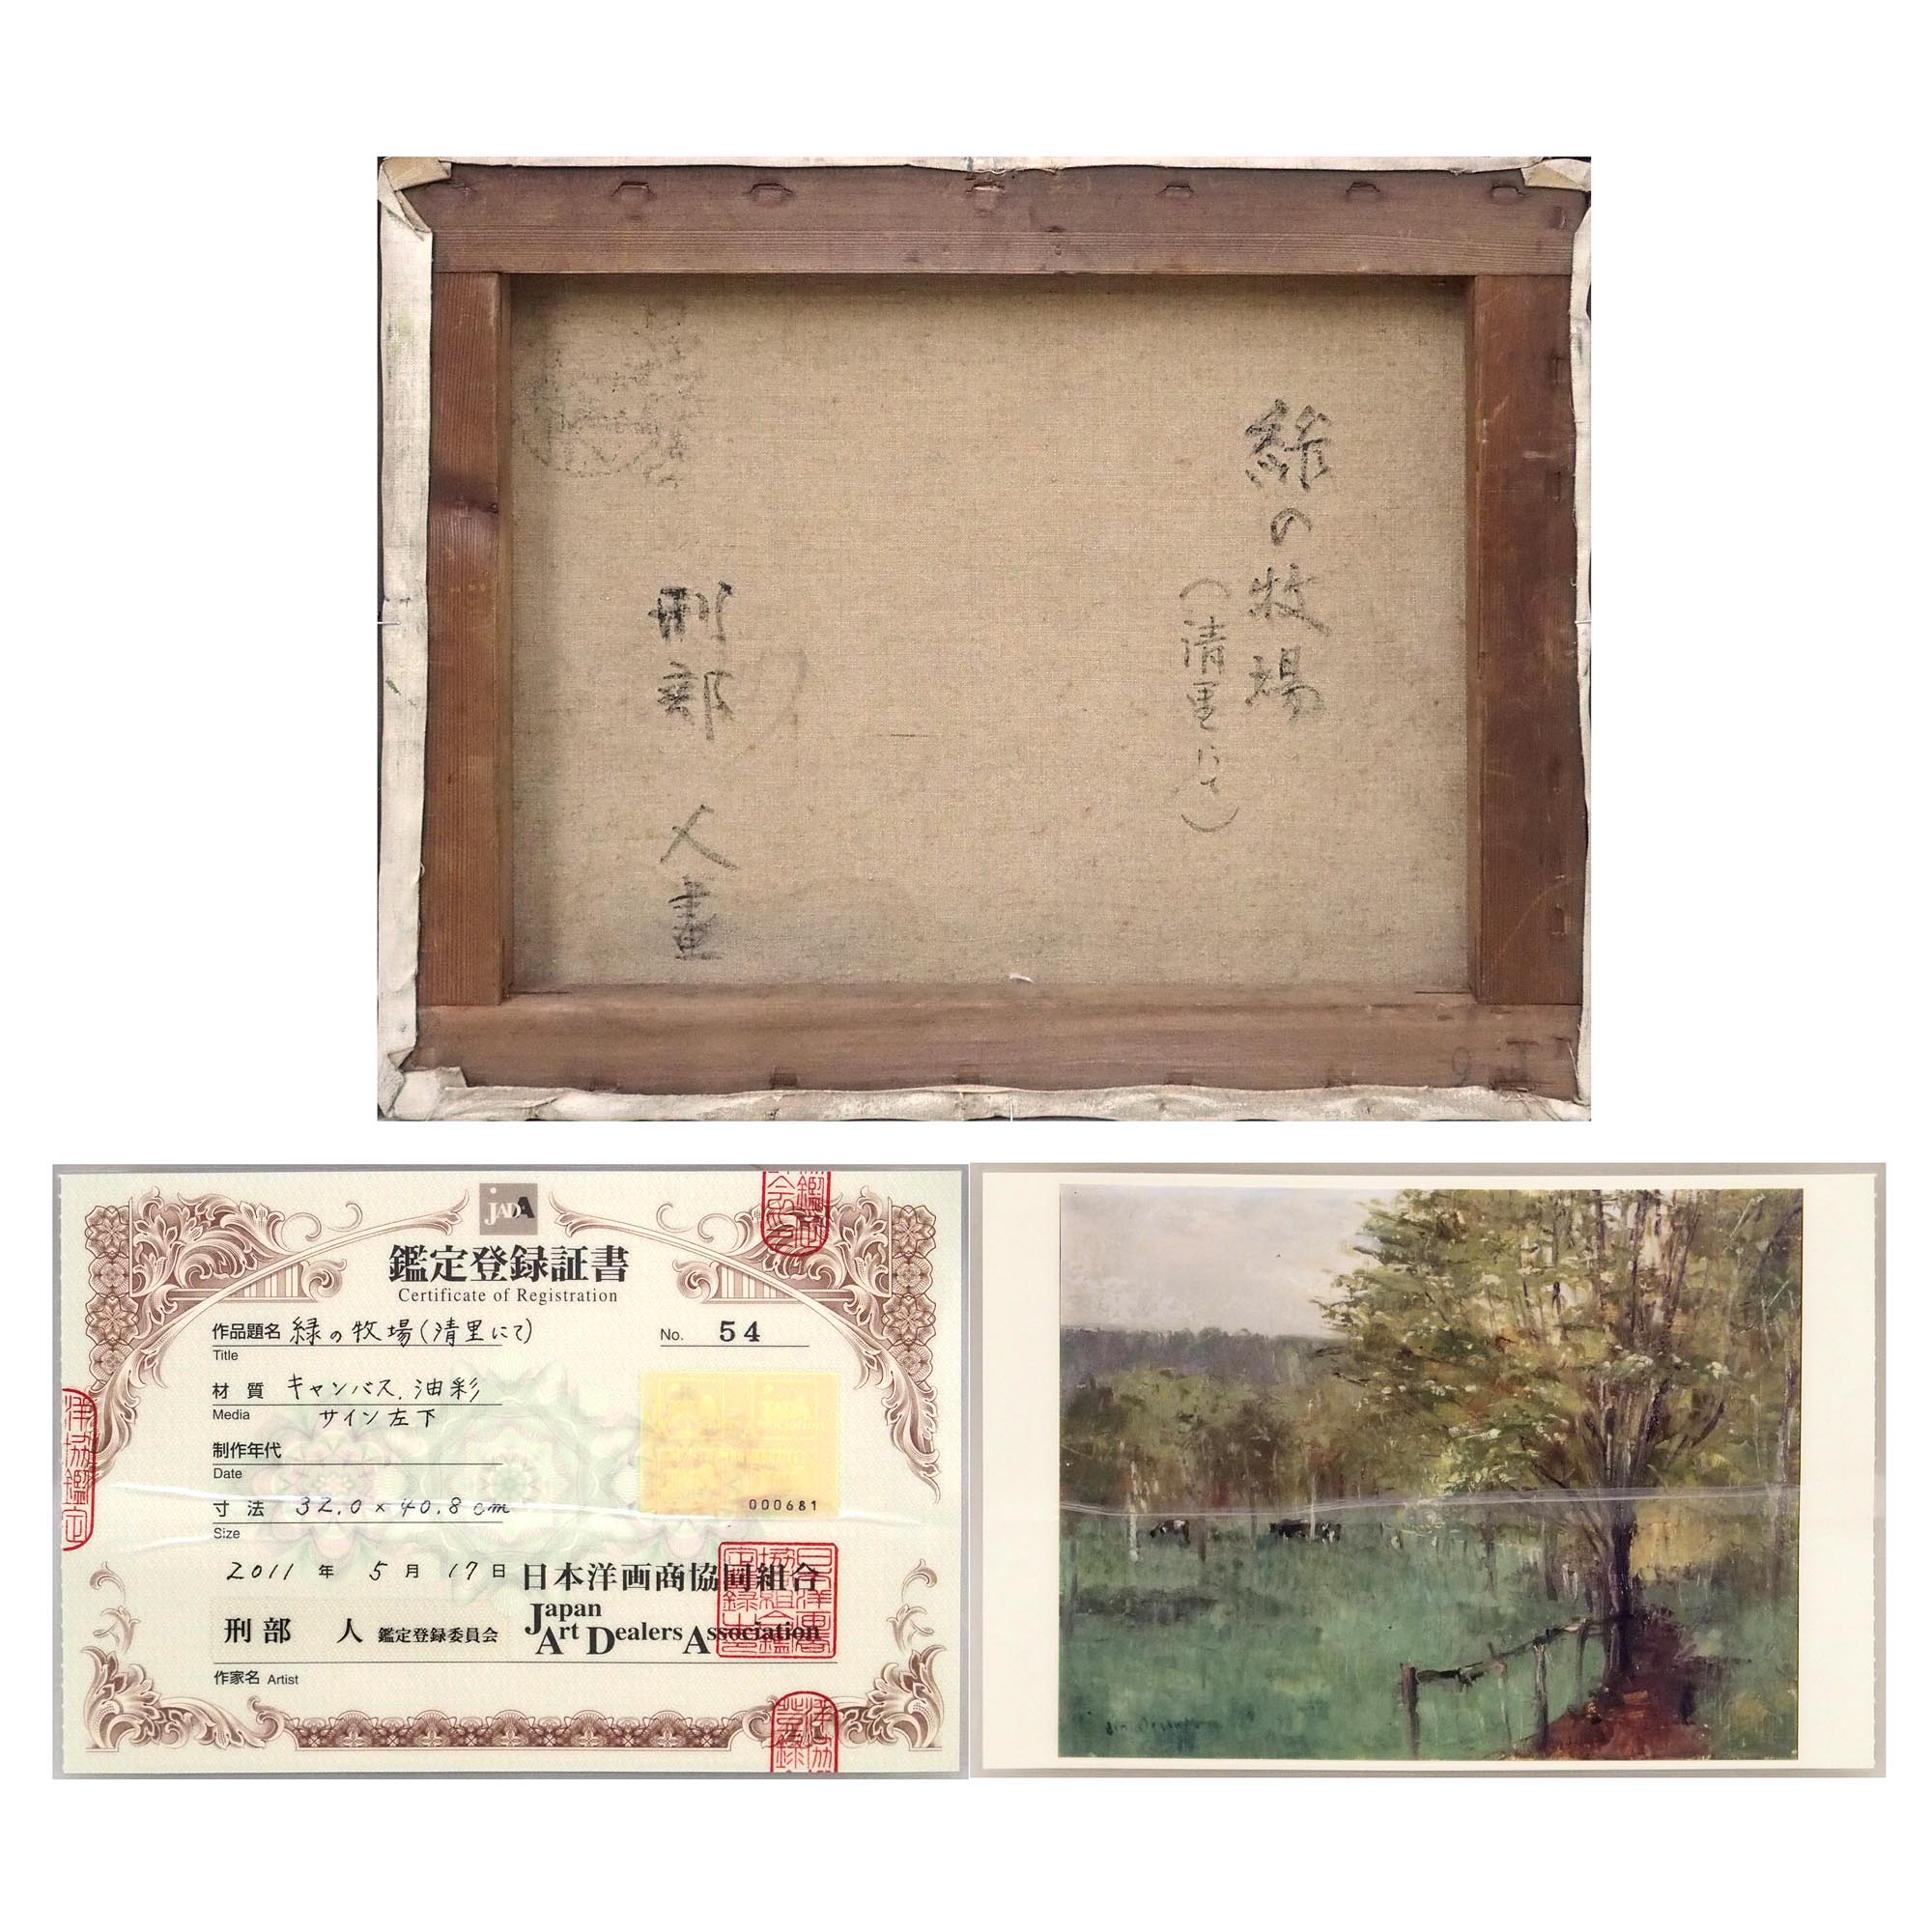 緑の牧場
（清里にて）
刑部 人畫
JADA
鑑定登録証書
Certificate of Registration
作品題名 緑の牧場(清里にて)
Title
No. 54
材質 キャンバス、油彩
Media サイン左下
制作年代
Date
000681
寸法 32.0×40.8cm
Size
2011年5月17日 日本洋画商協同組合
Japan
Art Dealers Association
刑部 人 鑑定登録委員会
作家名 Artist